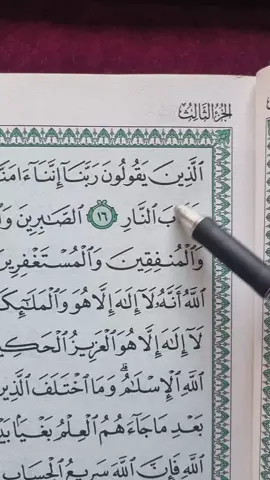 الجُزْءُ الثَّالِثُ
ٱلَّذِينَ يَقُولُونَ رَبَّنَآ إِنَّنَآ ءَامَنَّا
بَ ٱلنَّارِ ١٦ ٱلصَّٰبِرِينَ
وَٱلْمُنفِقِينَ وَٱلْمُسْتَغْفِرِينَ
ٱللَّهُ أَنَّهُۥ لَآ إِلَٰهَ إِلَّا هُوَ وَٱلْمَلَٰٓئِكَ
لَآ إِلَٰهَ إِلَّا هُوَ ٱلْعَزِيزُ ٱلْحَكِي
ٱللَّهِ ٱلْإِسْلَٰمُ ۗ وَمَا ٱخْتَلَفَ ٱلَّذِي
بَعْدِ مَا جَآءَهُمُ ٱلْعِلْمُ بَغْيَۢا بَيْ
ٱللَّهِ فَإِنَّ ٱللَّهَ سَرِيعُ ٱلْحِسَابِ